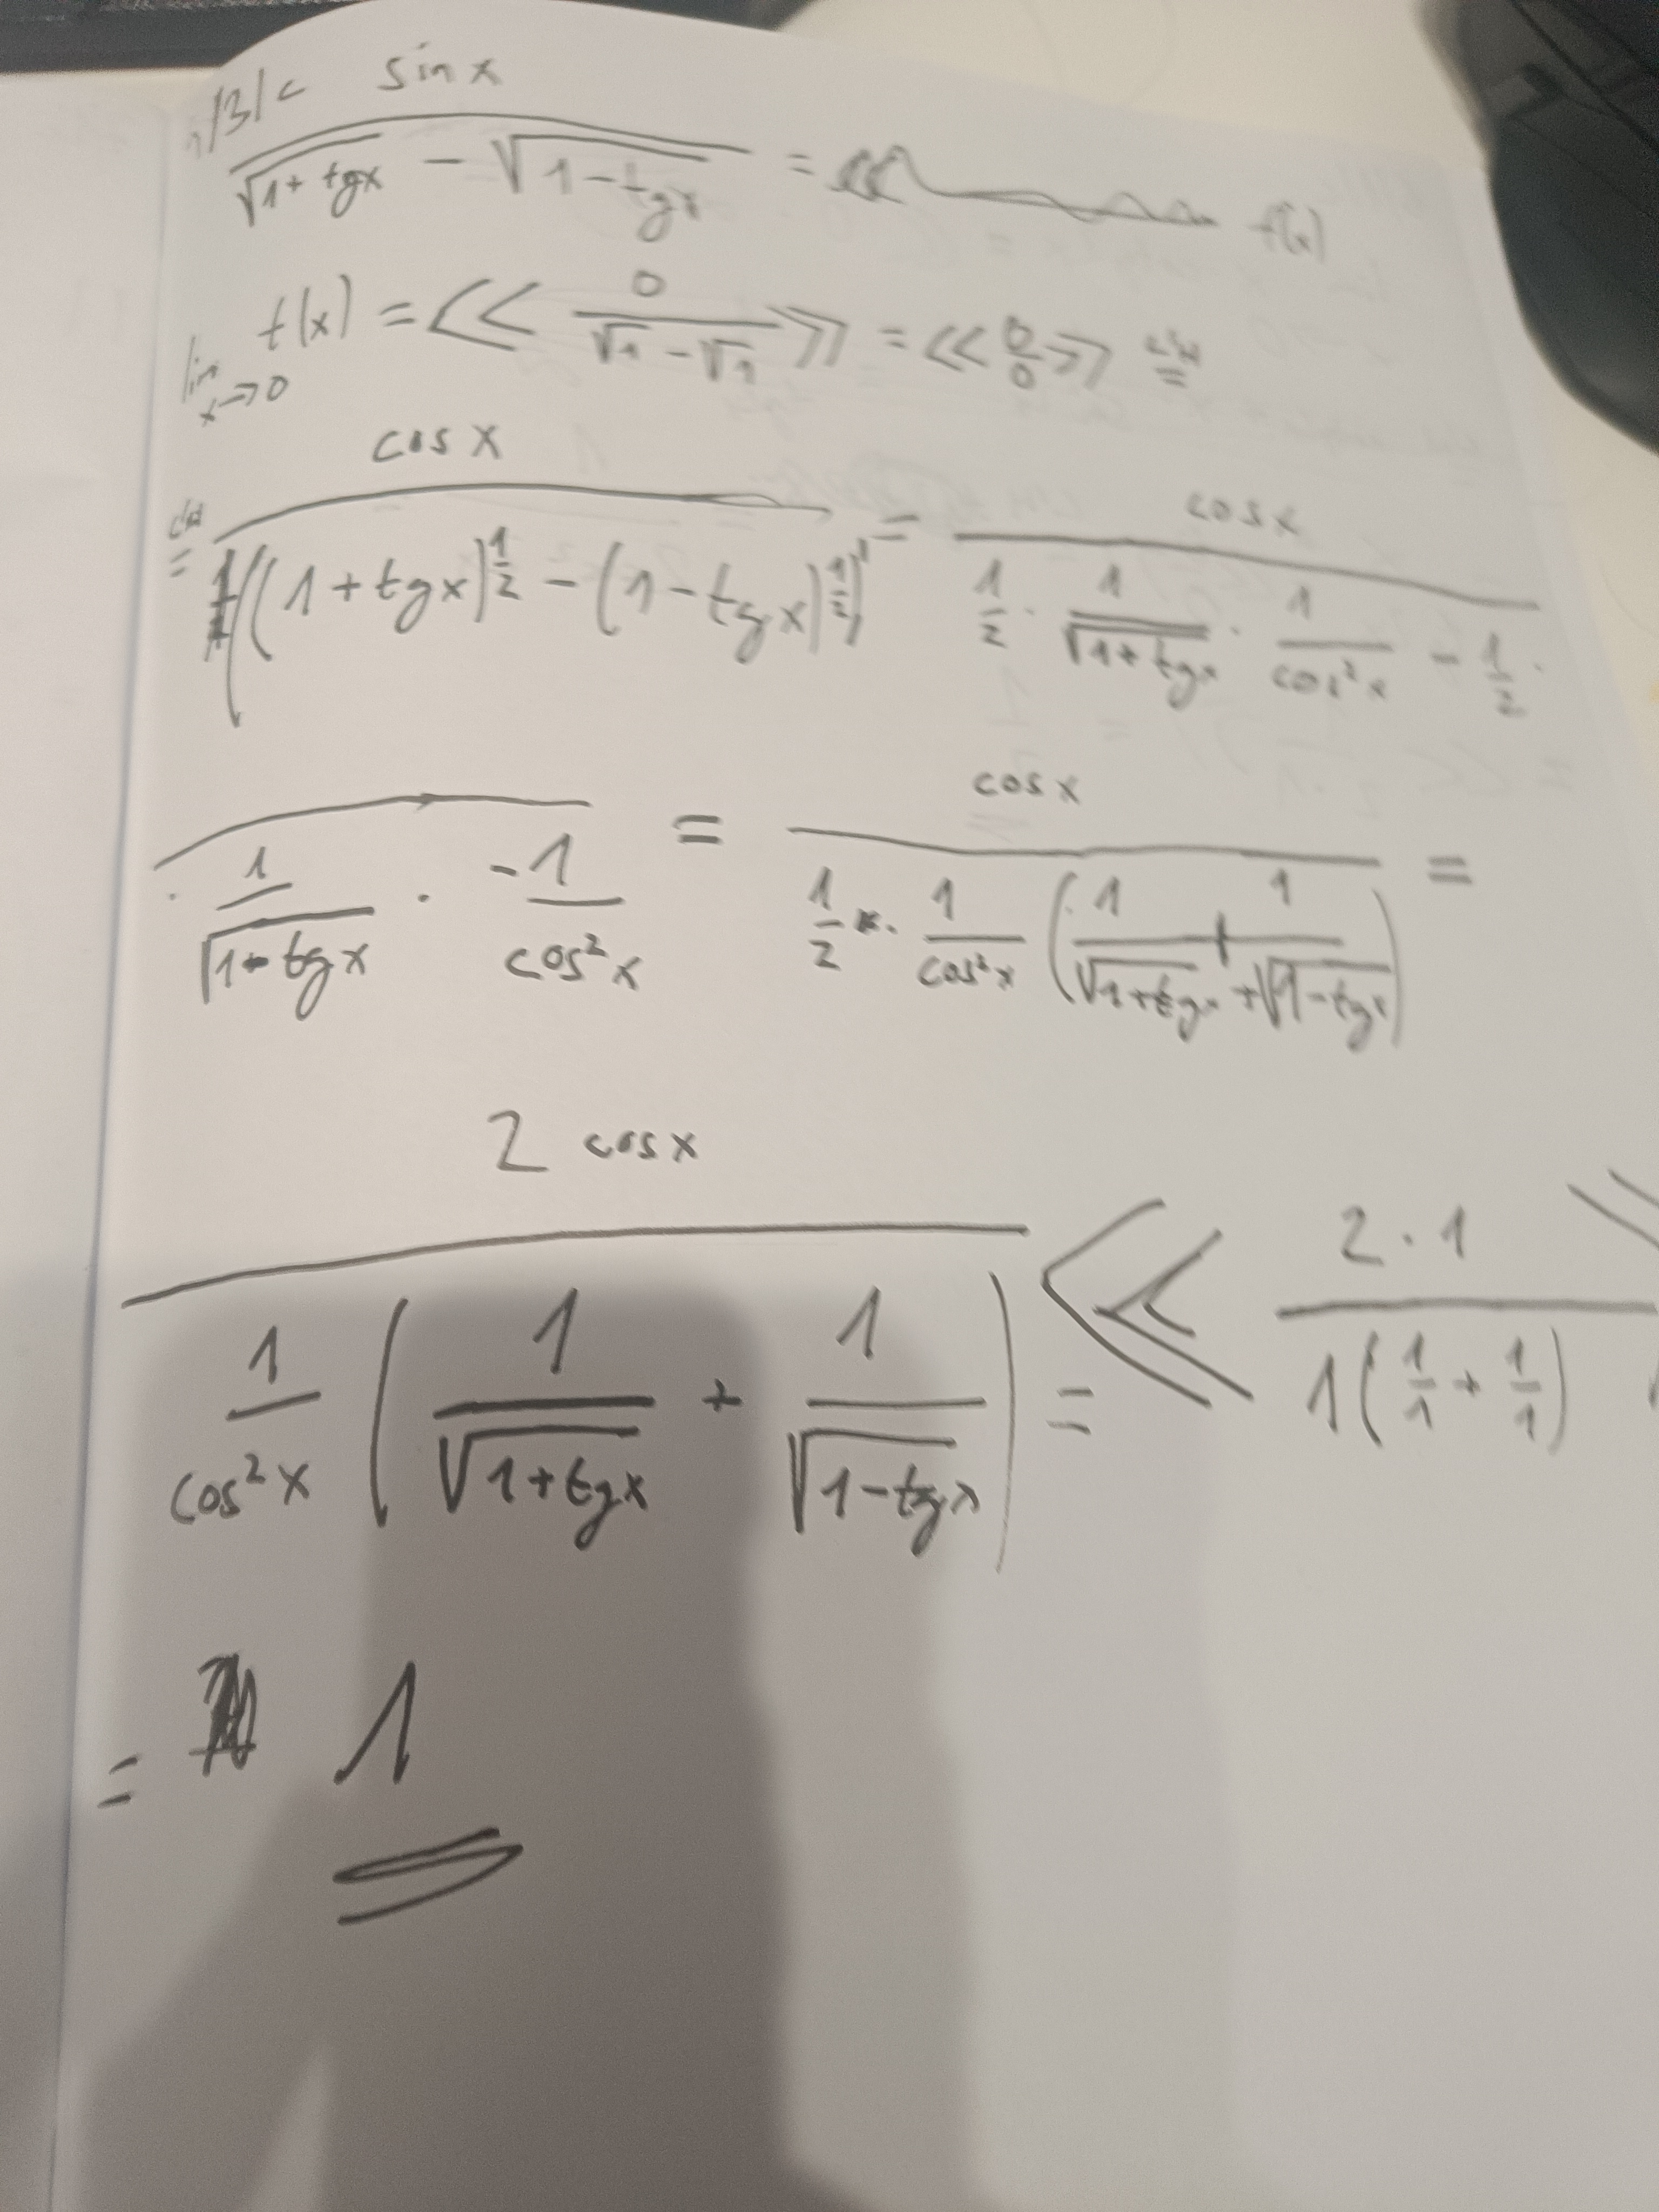 1/3/c sin x
√(1+tgx) − √(1−tgx) = f(x)
lim x→0 f(x) = << 0/(√1−√1) >> = << 0/0 >> L'H =
cos x / ((1+tgx)^(1/2) − (1−tgx)^(1/2))' = cos x / (1/2 · 1/√(1+tgx) · 1/cos²x − 1/2 ·
· 1/√(1-tgx) · -1/cos²x = cos x / (1/2 · 1/cos²x (1/√(1+tgx) + 1/√(1−tgx))) =
2 cos x / (1/cos²x (1/√(1+tgx) + 1/√(1−tgx))) = << 2·1 / 1(1/1 + 1/1) >>
= 1